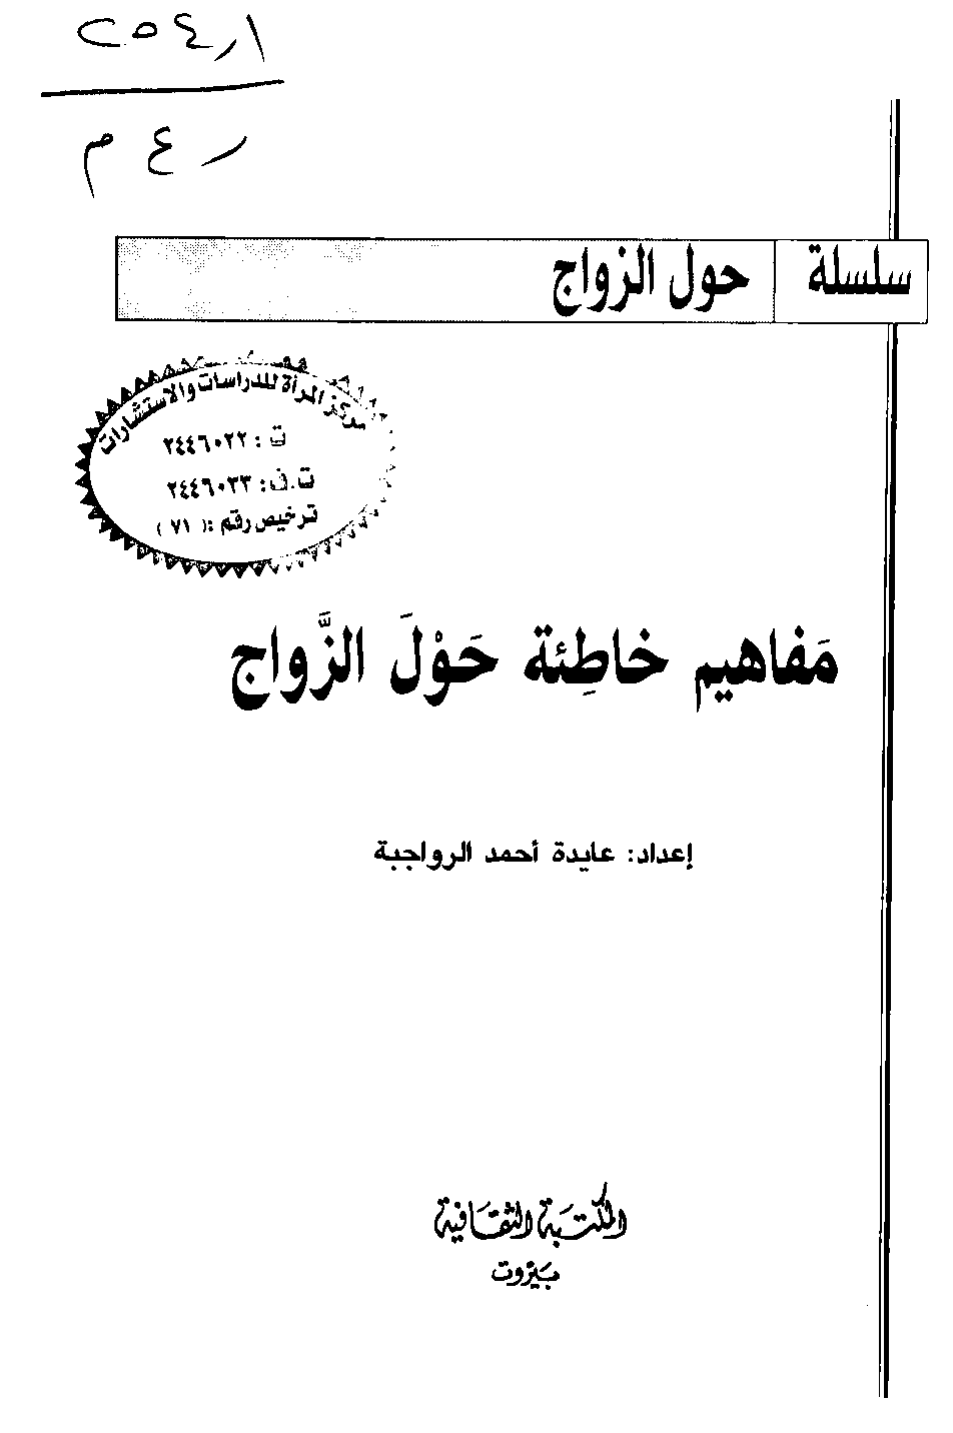 ٢٥٤٫١
ر ع م
سلسلة حول الزواج
مركز المرأة للدراسات والاستشارات
ت : ٢٤٤٦٠٢٢
ت.ف: ٢٤٤٦٠٣٣
ترخيص رقم :( ٧١ )
مَفاهيم خاطِئة حَوْلَ الزَّواج
إعداد: عايدة أحمد الرواجبة
المكتبة الثقافية
بيروت